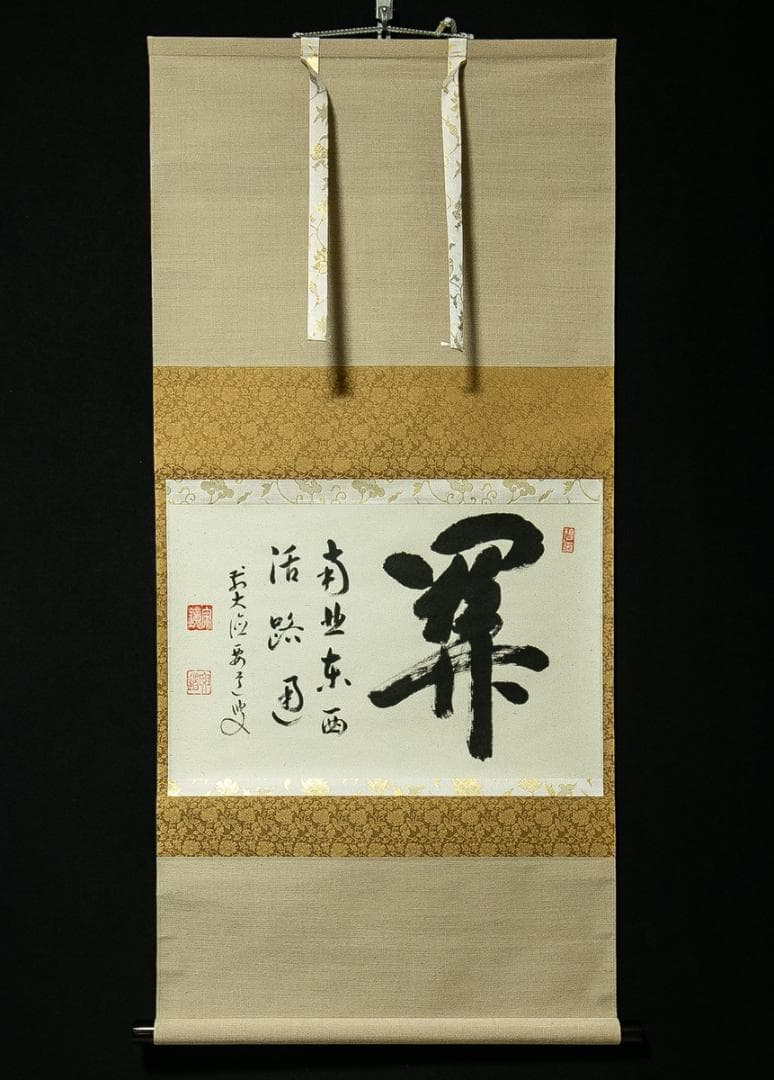 関
南北東西
活路通
前大徳要道叟